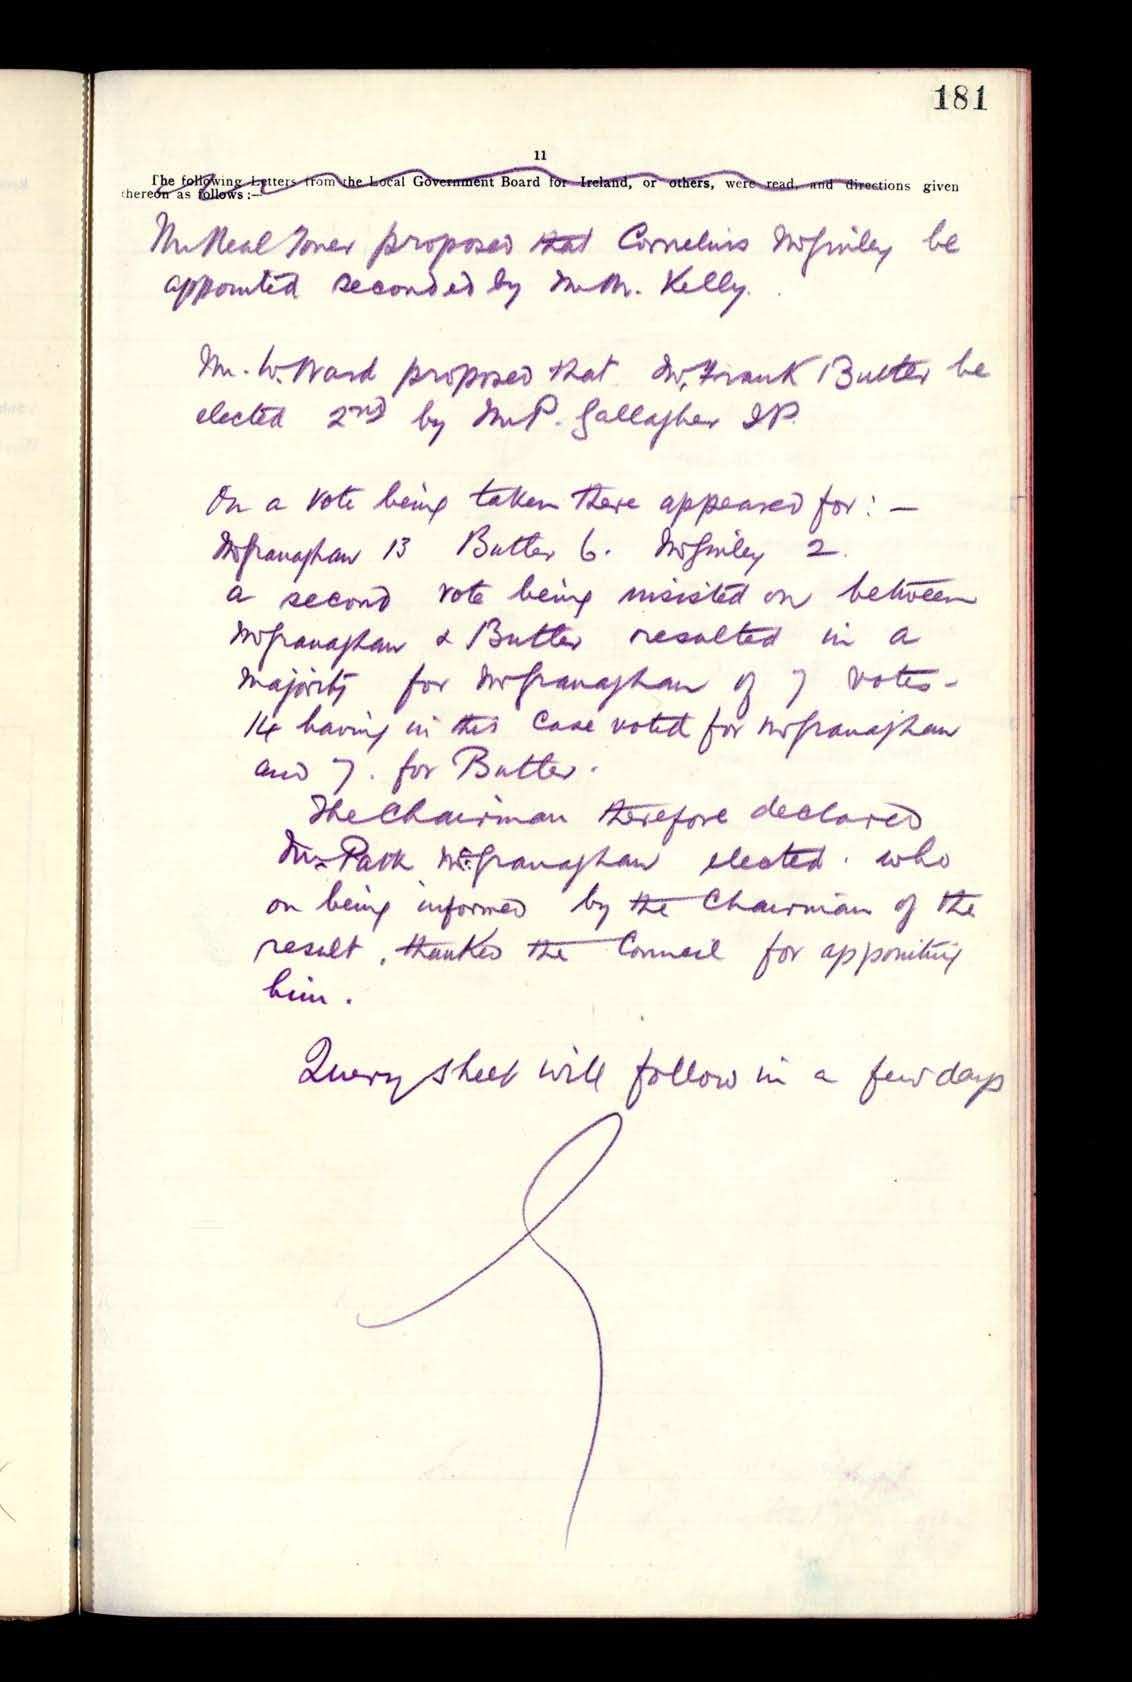 181
11
The following Letters from the Local Government Board for Ireland, or others, were read, and directions given
thereon as follows :—
Mr Neal Toner proposed that Cornelius McGinley be
appointed seconded by Mr M. Kelly.
Mr. W. Ward proposed that Mr Frank Butler be
elected 2nd by Mr P. Gallagher JP.
On a vote being taken there appeared for : —
McGranaghan 13 Butler 6. McGinley 2.
a second vote being insisted on between
McGranaghan & Butler resulted in a
majority for McGranaghan of 7 votes -
14 having in this case voted for McGranaghan
and 7. for Butler.
The Chairman therefore declared
Mr Patk McGranaghan elected. who
on being informed by the Chairman of the
result, thanked the Council for appointing
him.
Query sheet will follow in a few days